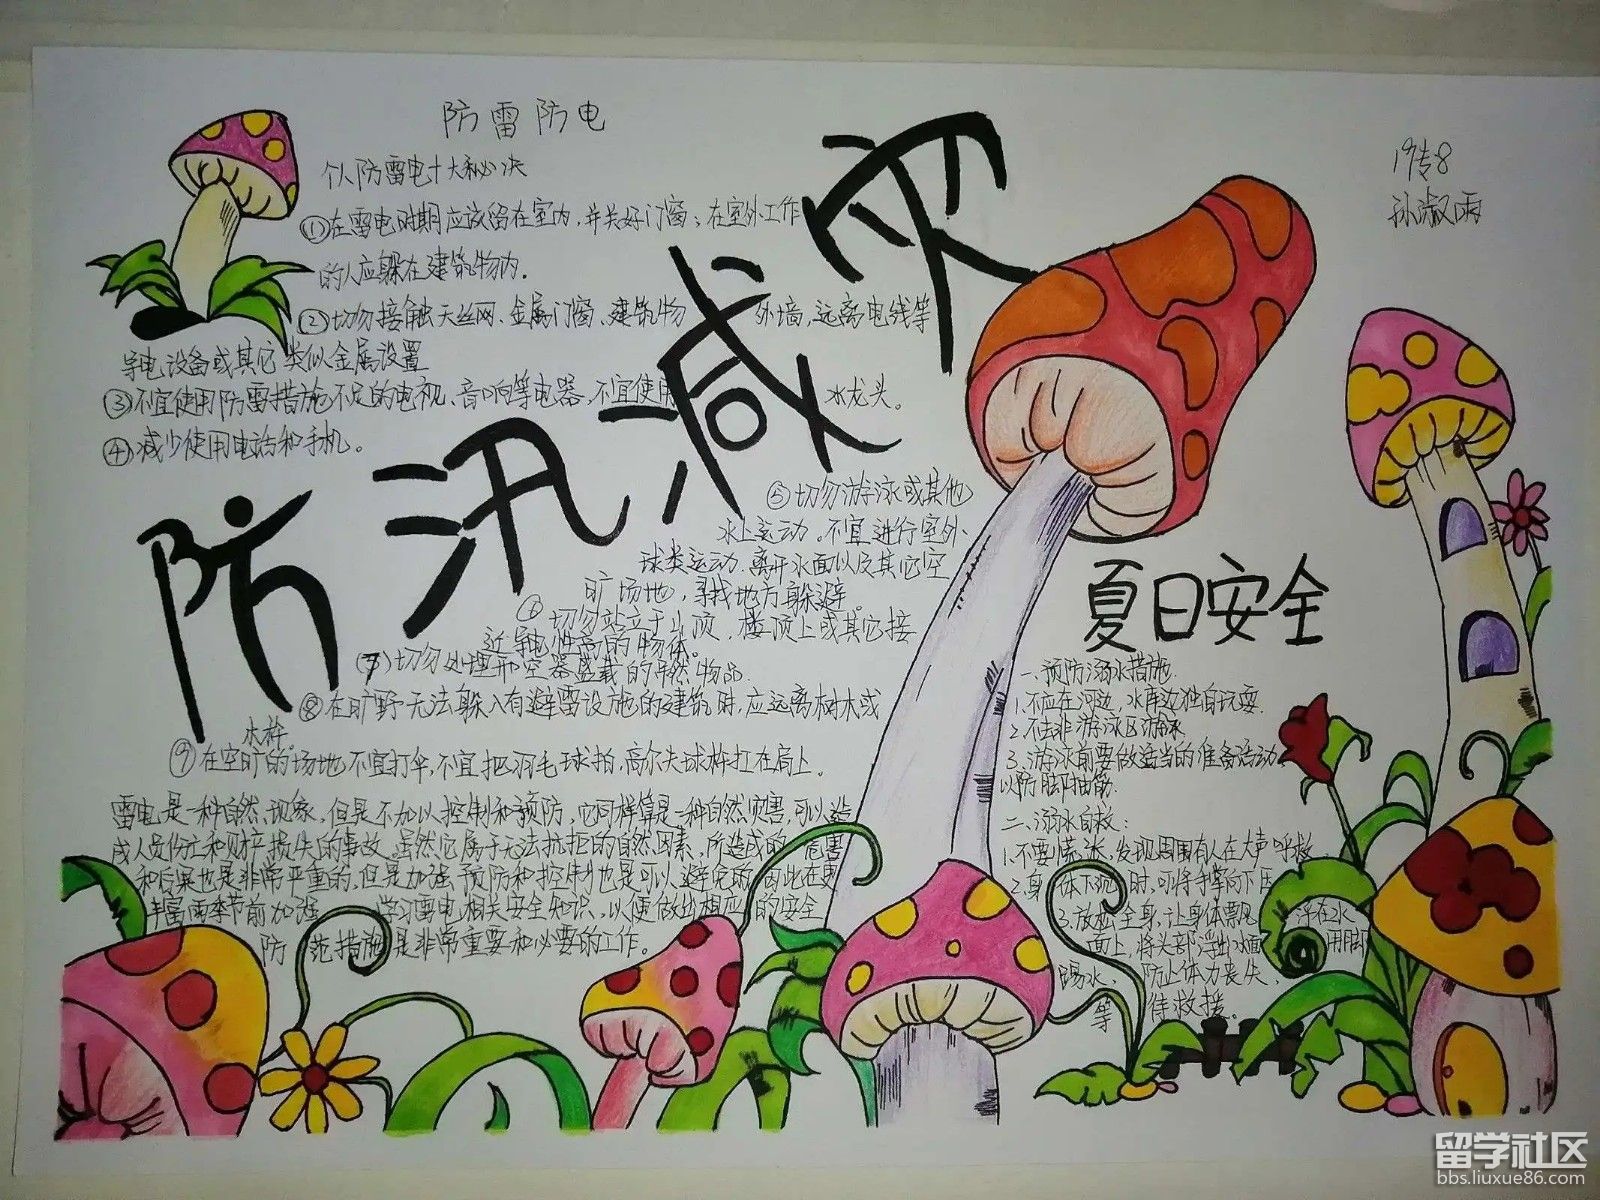 防雷防电
个人防雷电十大秘决
①在雷电时期应该留在室内，并关好门窗；在室外工作
的人应躲在建筑物内.
②切勿接触天丝网、金属门窗、建筑物外墙,远离电线等
导电设备或其它类似金属设置
③不宜使用防雷措施不足的电视、音响等电器,不宜使用水龙头。
④减少使用电话和手机。
防汛减灾
⑤切勿游泳或其他
水上运动。不宜进行室外
球类运动.离开水面以及其它空
旷场地，寻找地方躲避.
⑥切勿站立于山顶、楼顶上或其它接
近导电性高的物体。
⑦切勿处理开空器盛载的易燃物品.
⑧在旷野无法躲入有避雷设施的建筑时,应远离树木或
⑨在空旷的场地不宜打伞,不宜把羽毛球拍,高尔夫球杆扛在肩上.
雷电是一种自然现象,但是不加以控制和预防,它同样算是一种自然灾害,可以造
成人员伤亡和财产损失的事故.虽然它属于无法抗拒的自然因素,所造成的危害
和后果也是非常严重的,但是加强预防和控制也是可以避免
丰富雨季节前加强学习雷电相关安全知识,以便做出相应的安全
防范措施是非常重要和必要的工作。
19专8
孙淑雨
夏日安全
一.预防溺水措施.
1.不应在河边、水库边独自玩耍.
2.不去非游泳区游泳
3.游泳前要做适当的准备活动
以防脚抽筋.
二.溺水自救:
1.不要慌张,发现周围有人在大声呼救
2.身体下沉时,可将手掌向下压
3.放松全身,让身体飘浮在水
面上,将头部浮出水面用脚
踢水、防止体力丧失,
等待救援。
留学社区
bbs.liuxue86.com